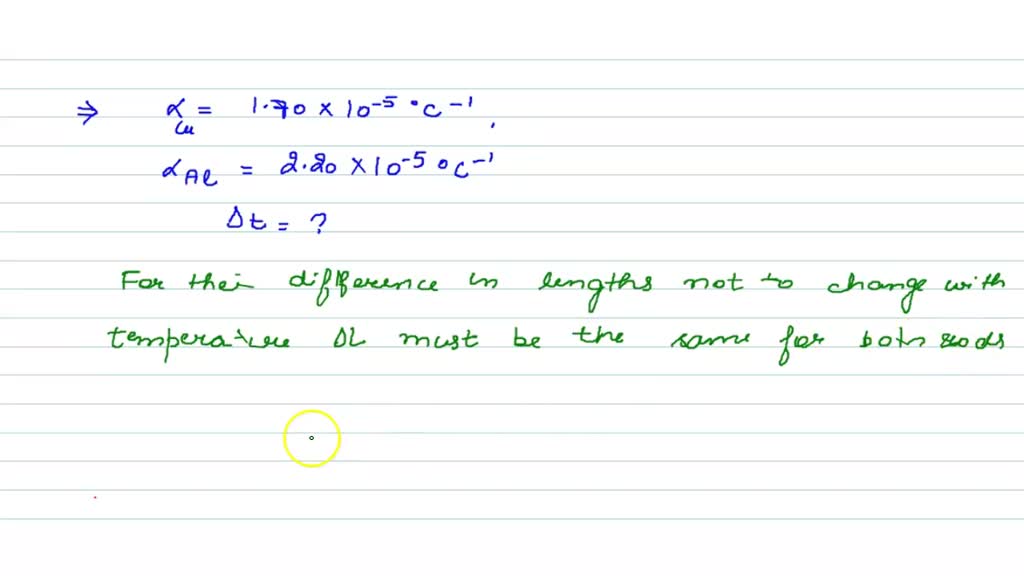 ⇒ α = 1.70 × 10⁻⁵ °C⁻¹,
Cu
α Al = 2.20 × 10⁻⁵ °C⁻¹
Δt = ?
For their difference in lengths not to change with
temperature ΔL must be the same for both rods